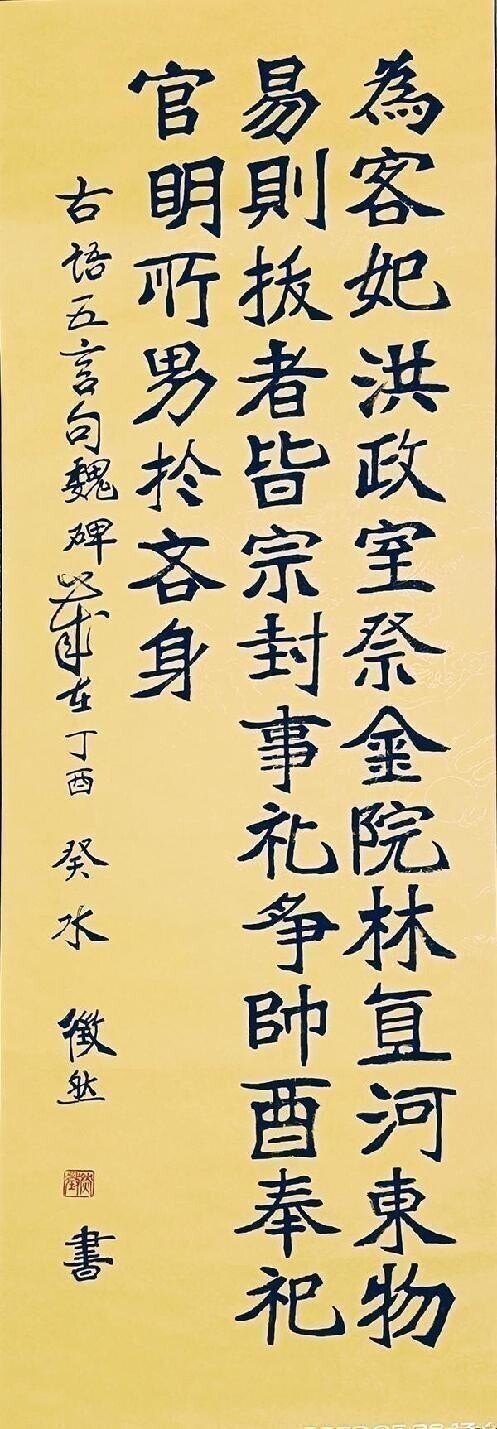 為客妃洪政室祭金院林直河東物
易則拔者皆宗封事礼争帥酉奉祀
官明所男於吝身
古語五言句魏碑 在丁酉 癸水 徵然 書